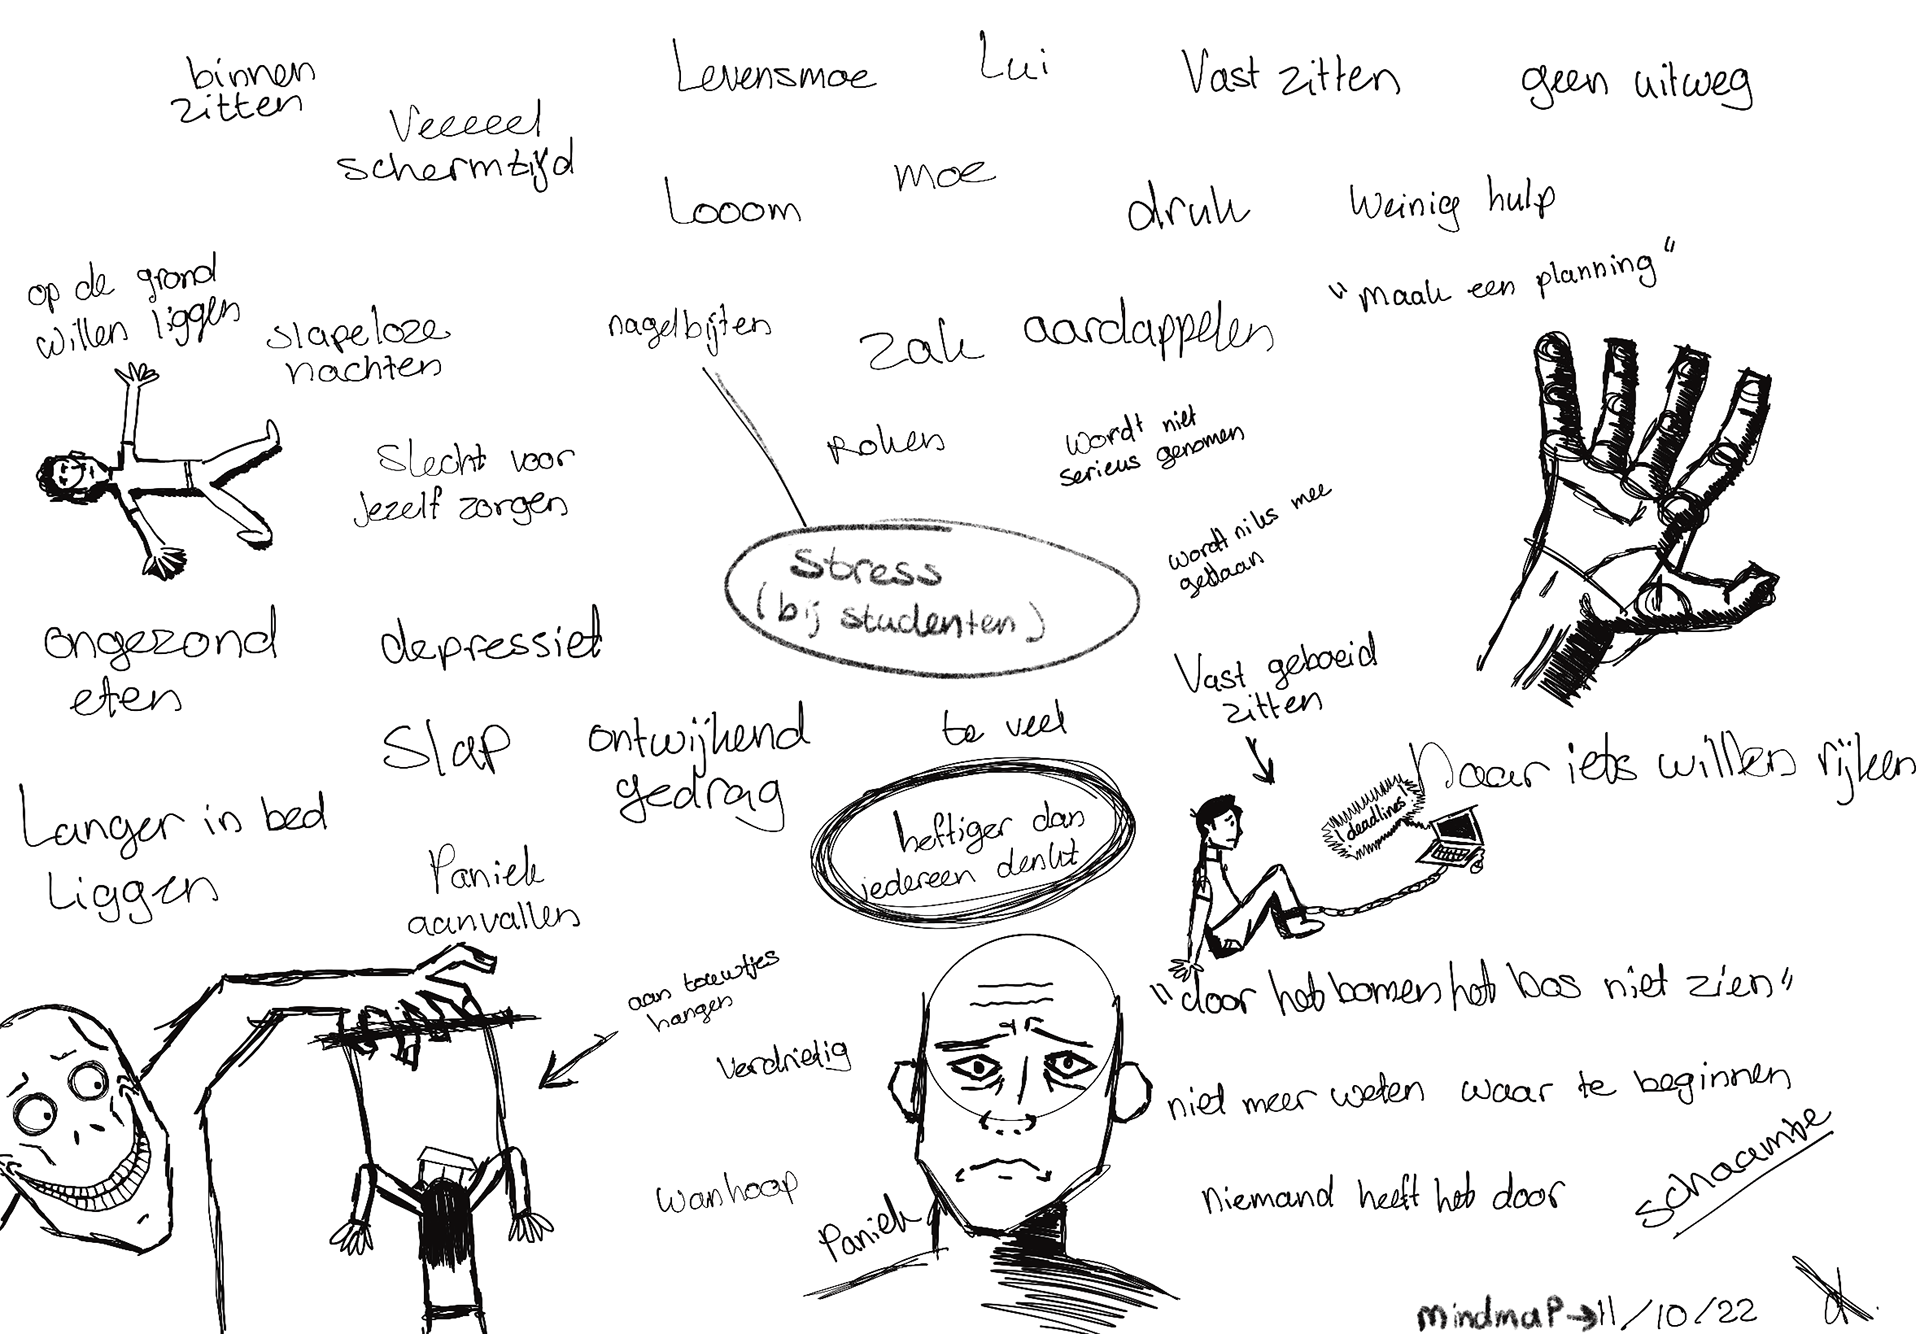 binnen
zitten
Veeeeel
schermtijd
Levensmoe
Lui
Vast zitten
geen uitweg
Looom
moe
druk
Weinig hulp
"Maak een planning"
op de grond
willen liggen
slapeloze
nachten
nagelbijten
zak aardappelen
Slecht voor
jezelf zorgen
Roken
wordt niet
serieus genomen
wordt niks mee
gedaan
Stress
(bij studenten)
ongezond
eten
depressief
Slap
ontwijkend
gedrag
te veel
Vast geboeid
zitten
Naar iets willen rijken
Langer in bed
Liggen
Paniek
aanvallen
heftiger dan
iedereen denkt
! deadlines !
aan touwtjes
hangen
"door het bomen het bos niet zien"
Verdrietig
niet meer weten waar te beginnen
wanhoop
Paniek
Niemand heeft het door
schaamte
mindmap→11/10/22